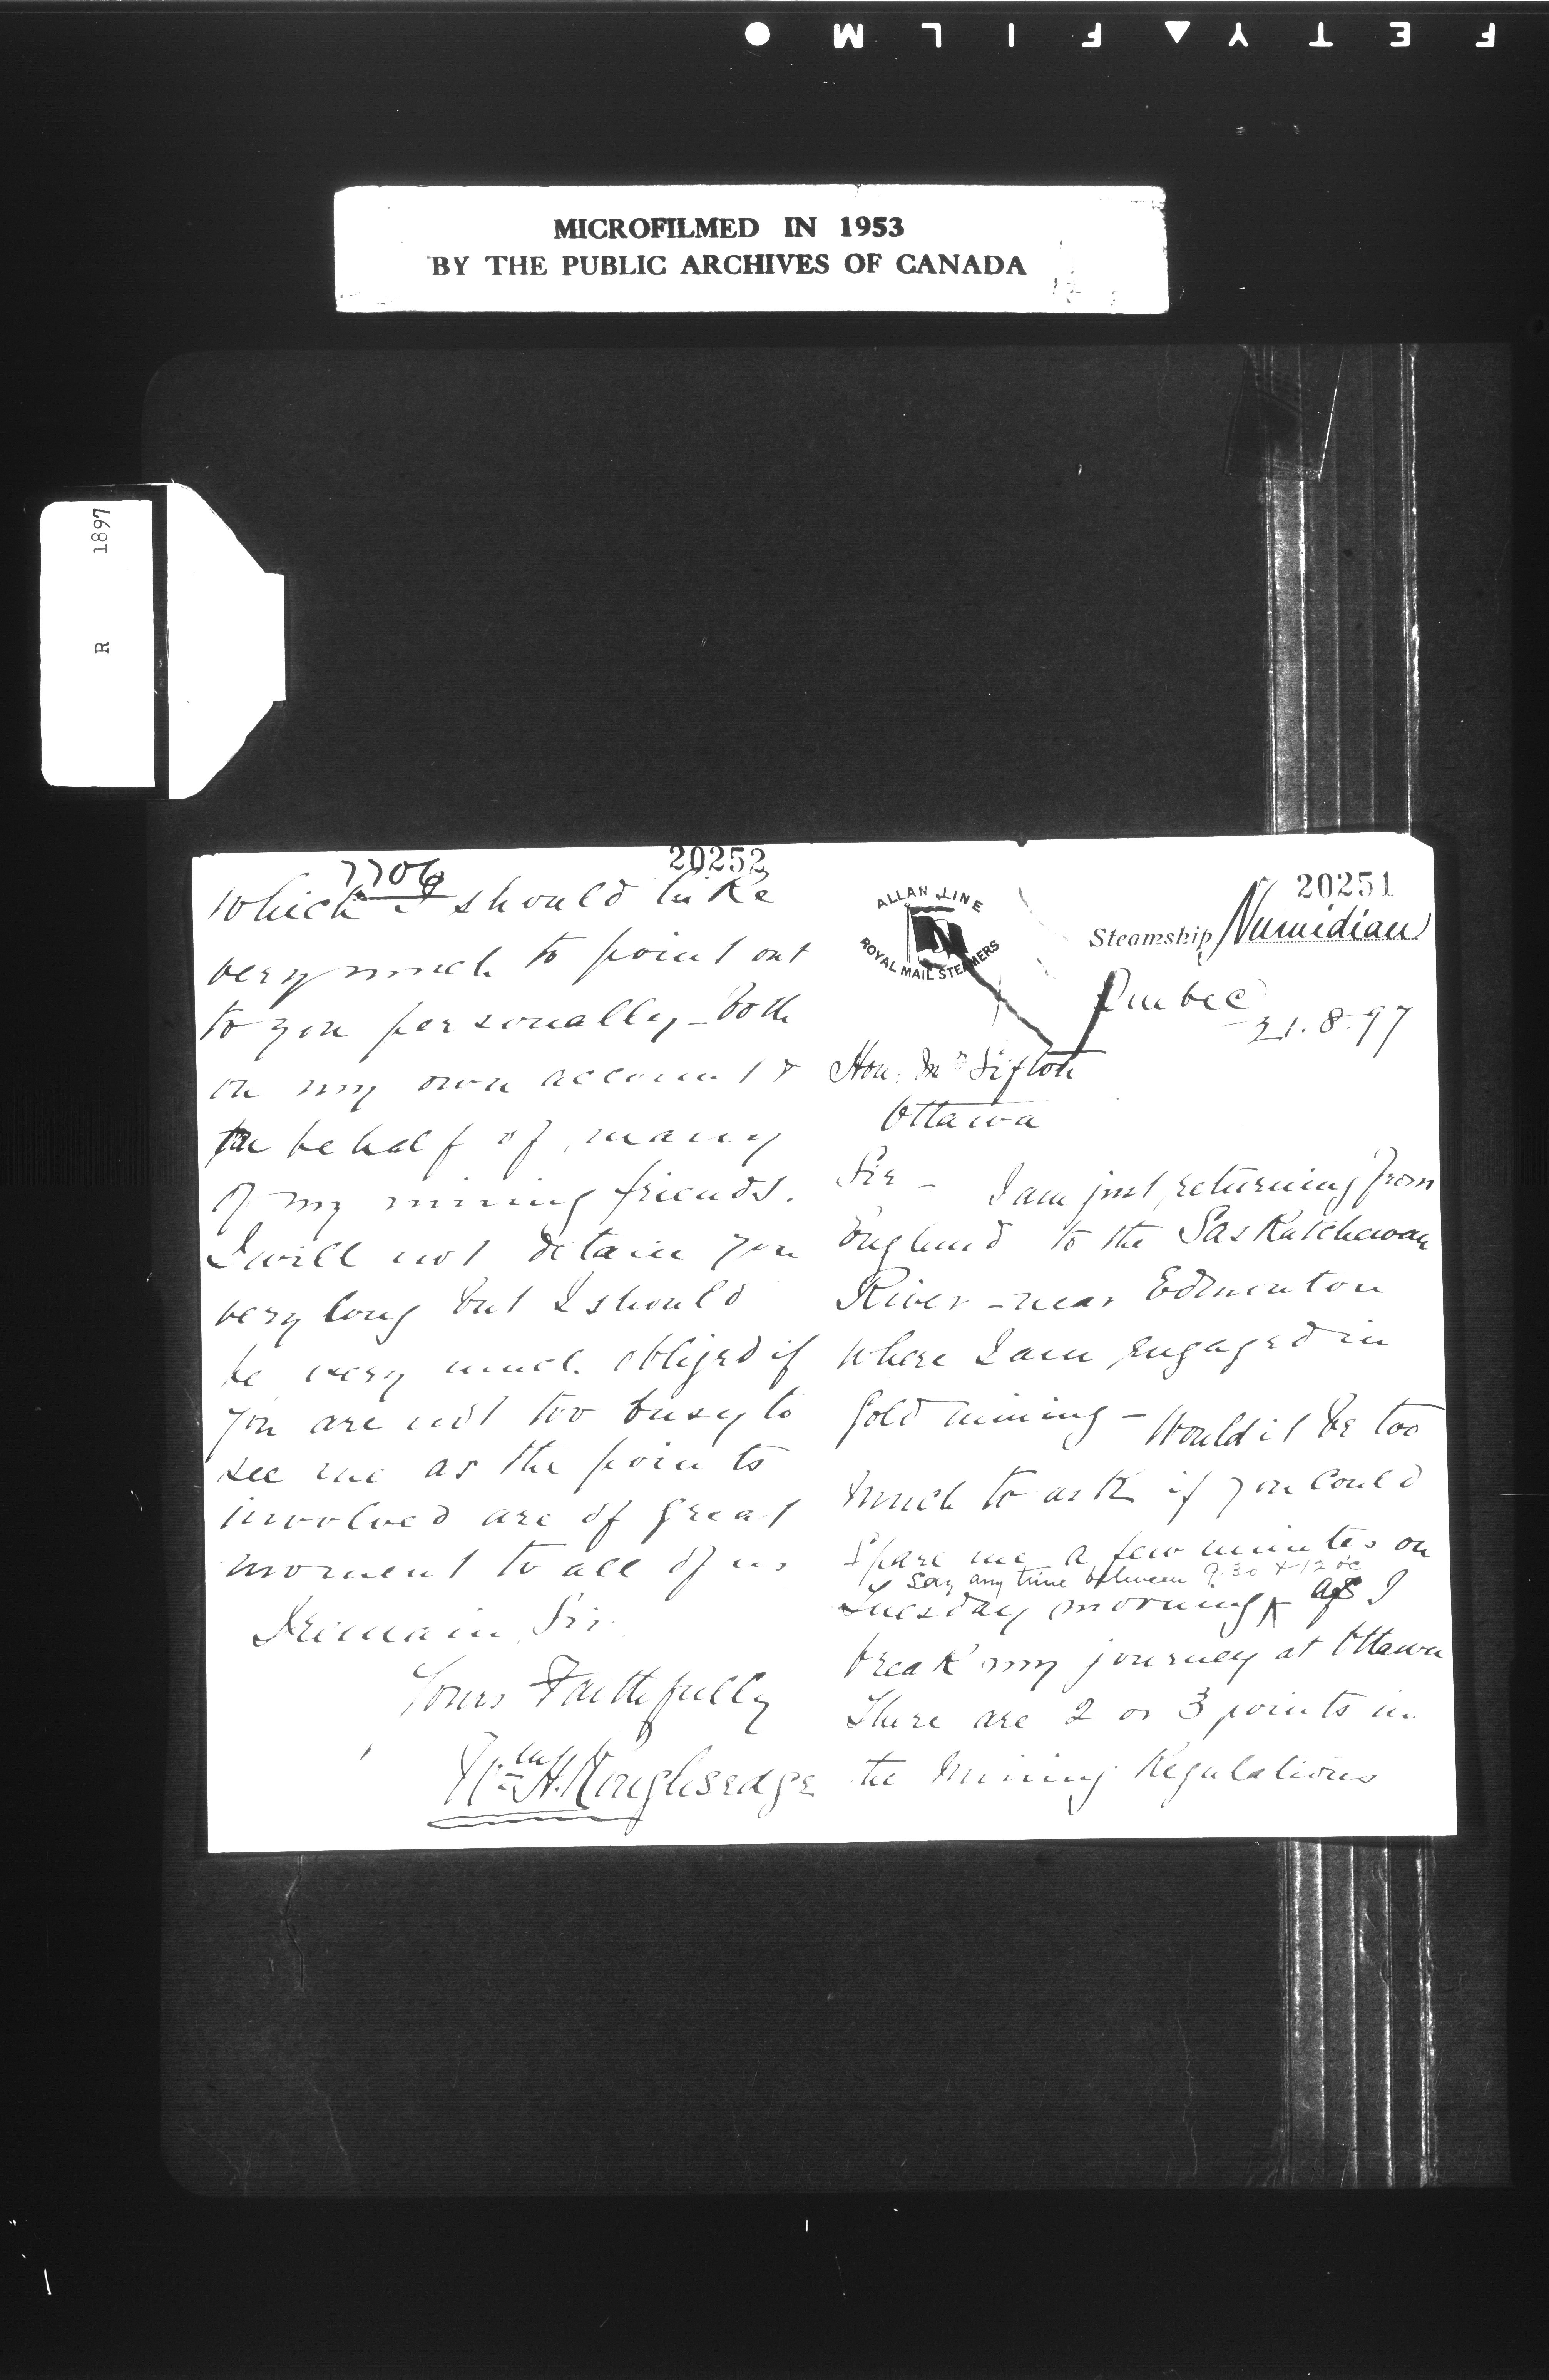 F E T Y ▲ F I L M ●
MICROFILMED IN 1953
BY THE PUBLIC ARCHIVES OF CANADA
R 1897
20251
ALLAN LINE
ROYAL MAIL STEAMERS
Steamship Numidian
Quebec
21.8.97
Hon. Mr Sifton
Ottawa
Sir - I am just returning from
England to the Saskatchewan
River - near Edmonton
where I am engaged in
Gold mining - Would it be too
much to ask if you could
spare me a few minutes on
say any time between 9.30 & 12 oc
Tuesday morning as I
break my journey at Ottawa
There are 2 or 3 points in
the Mining Regulations
20252
7706
which I should like
very much to point out
to you personally - both
on my own account &
on behalf of many
of my mining friends.
I will not detain you
very long but I should
be very much obliged if
you are not too busy to
see me as the points
involved are of great
moment to all of us
I remain Sir
Yours Faithfully
Wm H. Roughsedge